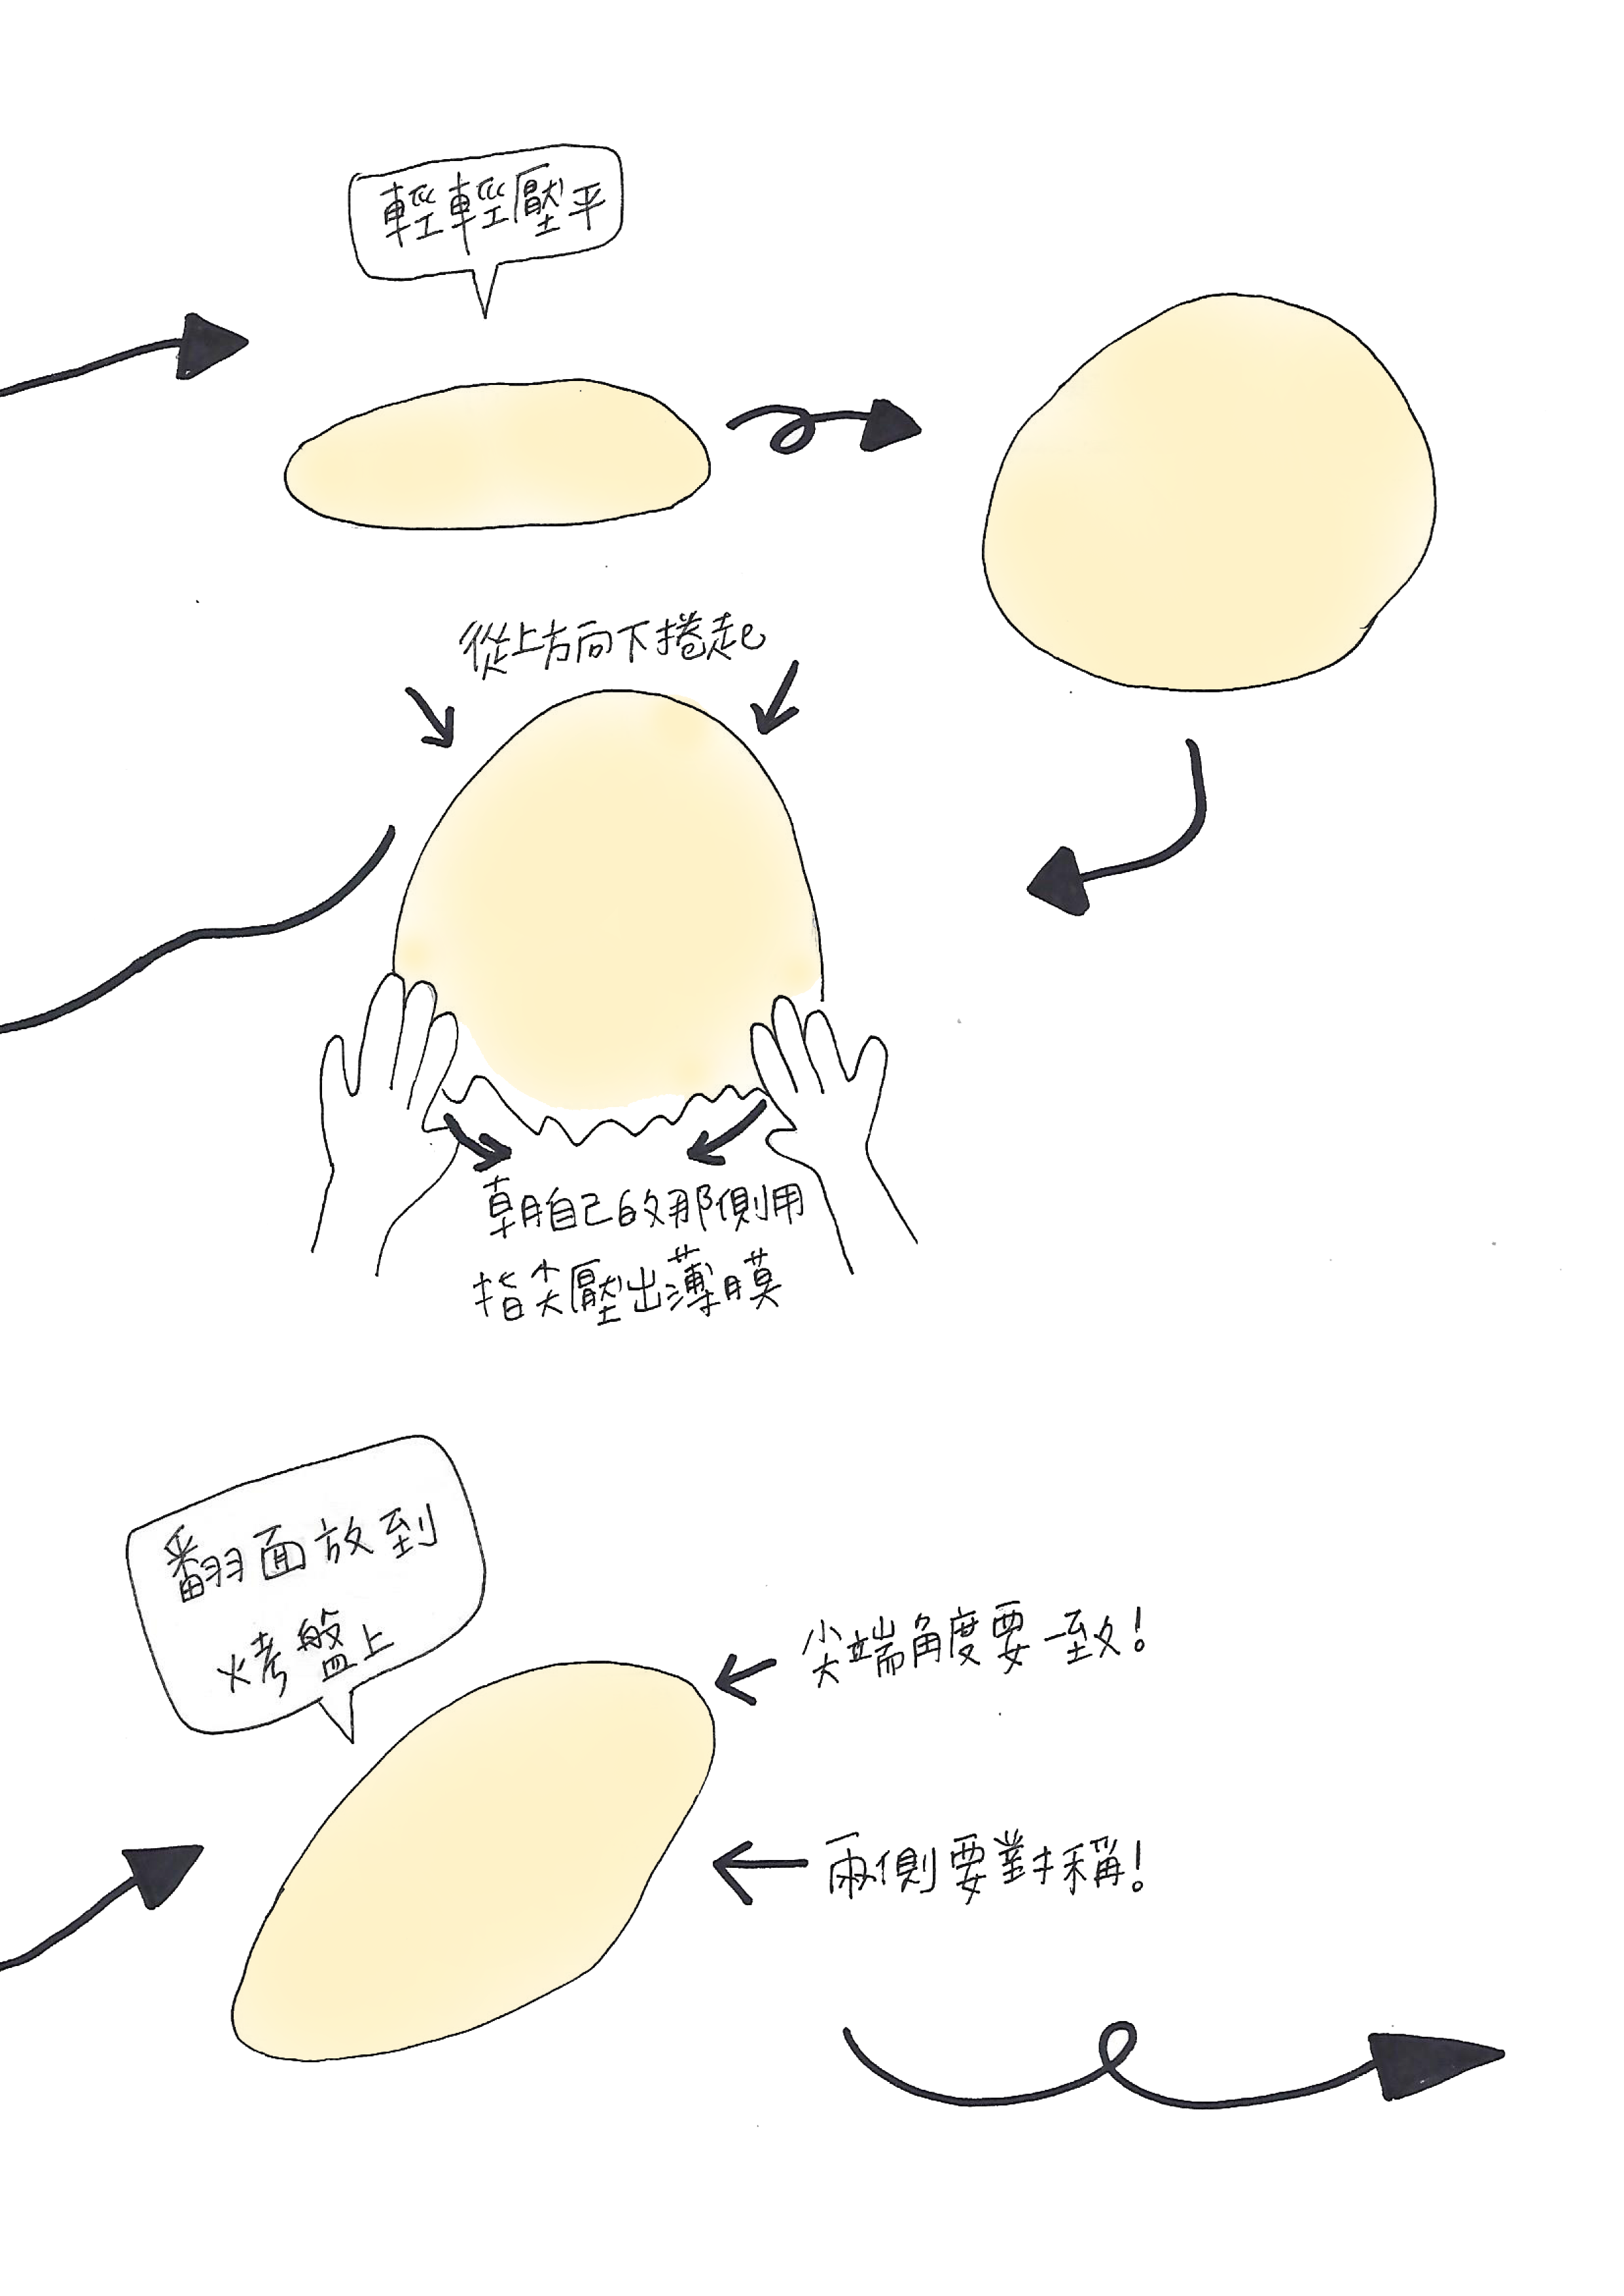 輕輕壓平
從上方向下捲起
朝自己的那側用
指尖壓出薄膜
翻面放到
烤盤上
尖端角度要一致!
兩側要對稱!